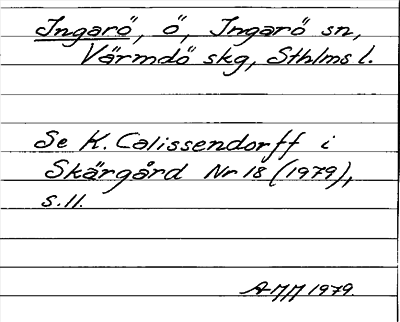 Ingarö, ö, Ingarö sn,
Värmdö skg, Sthlms l.
Se K. Calissendorff i
Skärgård Nr 18 (1979),
s. 11.
AMM 1979.